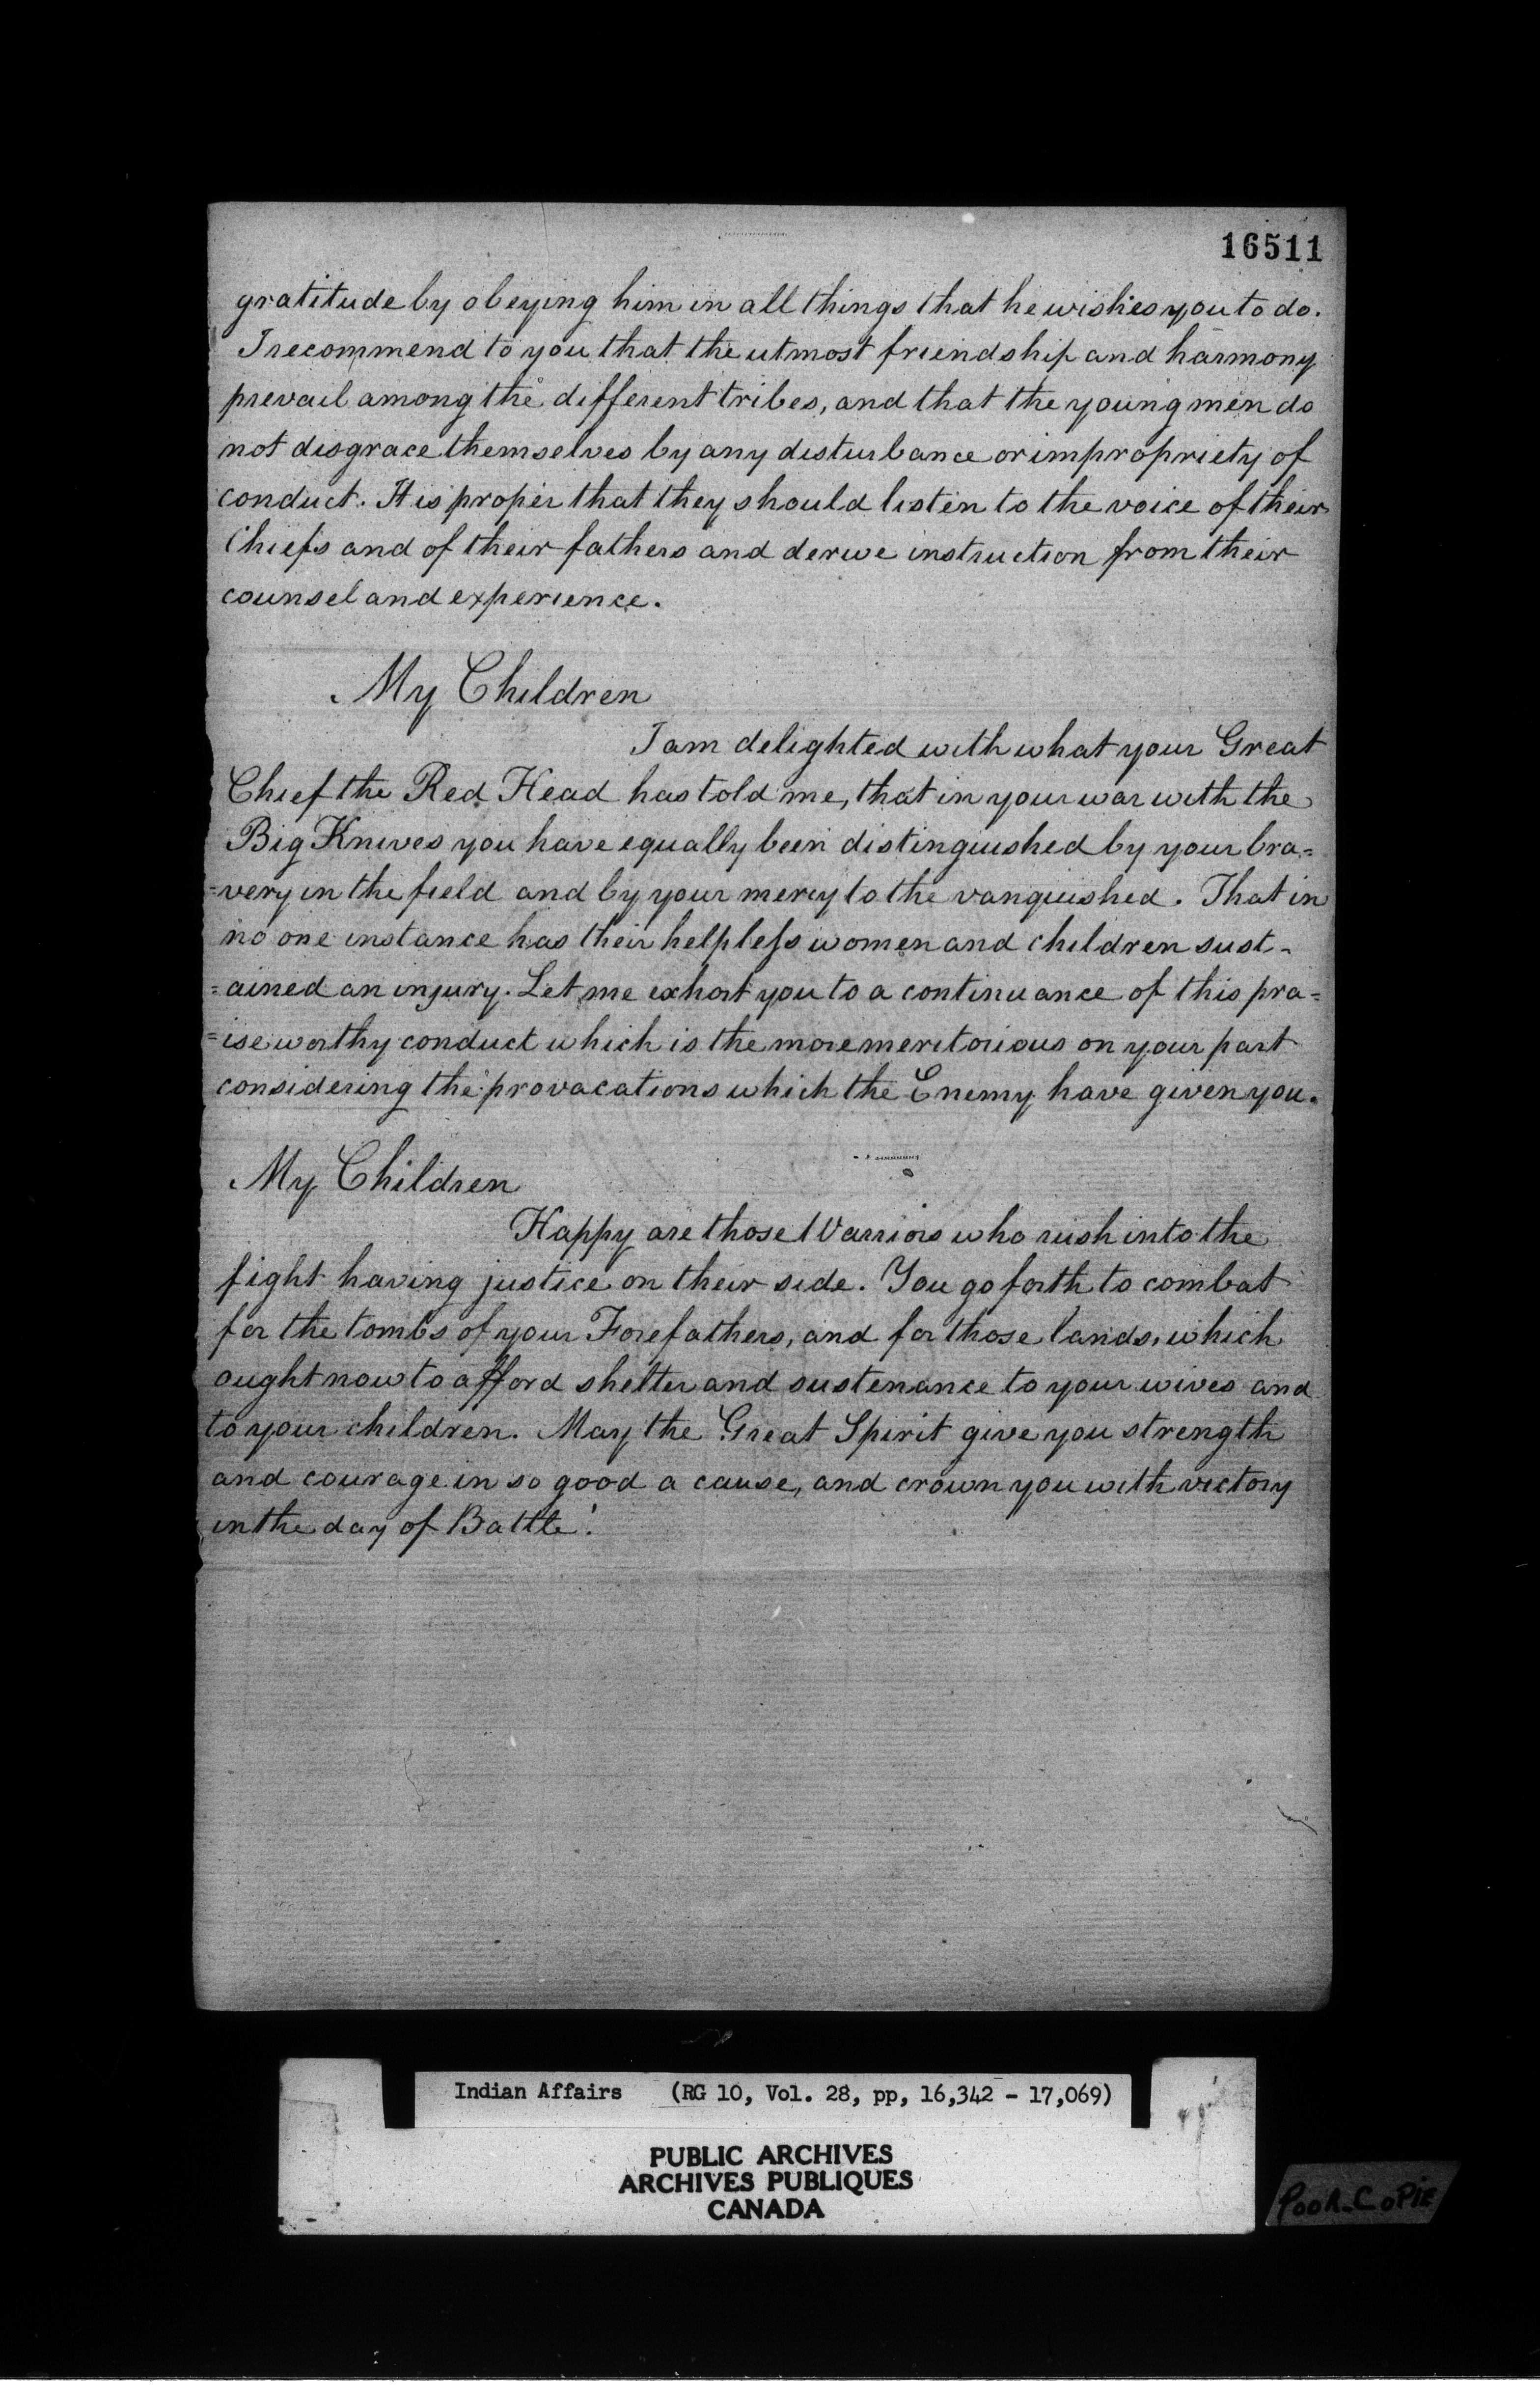 16511
gratitude by obeying him in all things that he wishes you to do.
I recommend to you that the utmost friendship and harmony
prevail among the different tribes, and that the young men do
not disgrace themselves by any disturbance or impropriety of
conduct. It is proper that they should listen to the voice of their
Chiefs and of their fathers and derive instruction from their
counsel and experience.
My Children
I am delighted with what your Great
Chief the Red Head has told me, that in your war with the
Big Knives you have equally been distinguished by your bra=
=very in the field and by your mercy to the vanquished. That in
no one instance has their helpless women and children sust-
=ained an injury. Let me exhort you to a continuance of this pra=
=iseworthy conduct which is the more meritorious on your part
considering the provacations which the Enemy have given you.
My Children
Happy are those Warriors who rush into the
fight having justice on their side. You go forth to combat
for the tombs of your Forefathers, and for those lands, which
ought now to afford shelter and sustenance to your wives and
to your children. May the Great Spirit give you strength
and courage in so good a cause, and crown you with victory
in the day of Battle!
Indian Affairs (RG 10, Vol. 28, pp, 16,342 - 17,069)
PUBLIC ARCHIVES
ARCHIVES PUBLIQUES
CANADA
POOR-COPIE